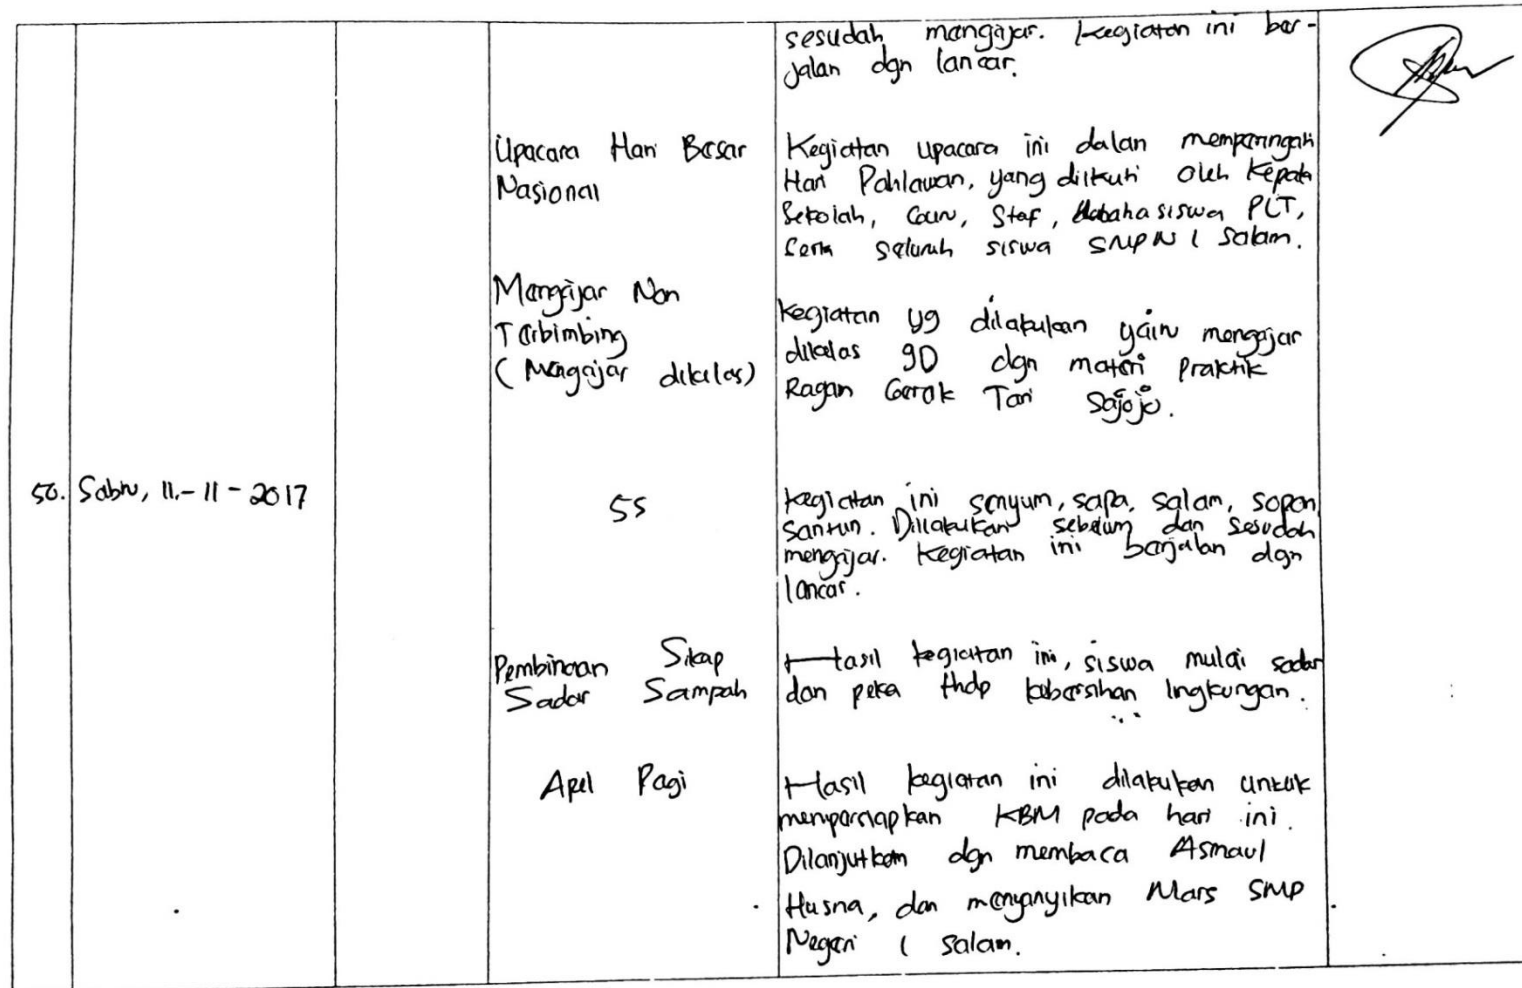 sesudah mengajar. Kegiatan ini ber-
jalan dgn lancar.
Upacara Hari Besar
Nasional
Kegiatan upacara ini dalam memperingati
Hari Pahlawan, yang diikuti oleh Kepala
Sekolah, Guru, Staf, Mahasiswa PLT,
Serta seluruh siswa SMP N 1 Salam.
Mengajar Non
Terbimbing
(Mengajar dikelas)
Kegiatan yg dilakukan yaitu mengajar
dikelas 9D dgn materi praktik
Ragam Gerak Tari Sajojo.
50. Sabtu, 11-11-2017
5S
Kegiatan ini senyum, sapa, salam, sopan
santun. Dilakukan sebelum dan sesudah
mengajar. Kegiatan ini berjalan dgn
lancar.
Pembinaan Sikap
Sadar Sampah
Hasil kegiatan ini, siswa mulai sadar
dan peka thdp kebersihan lingkungan.
Apel Pagi
Hasil kegiatan ini dilakukan untuk
mempersiapkan KBM pada hari ini.
Dilanjutkan dgn membaca Asmaul
Husna, dan menyanyikan Mars SMP
Negeri 1 Salam.